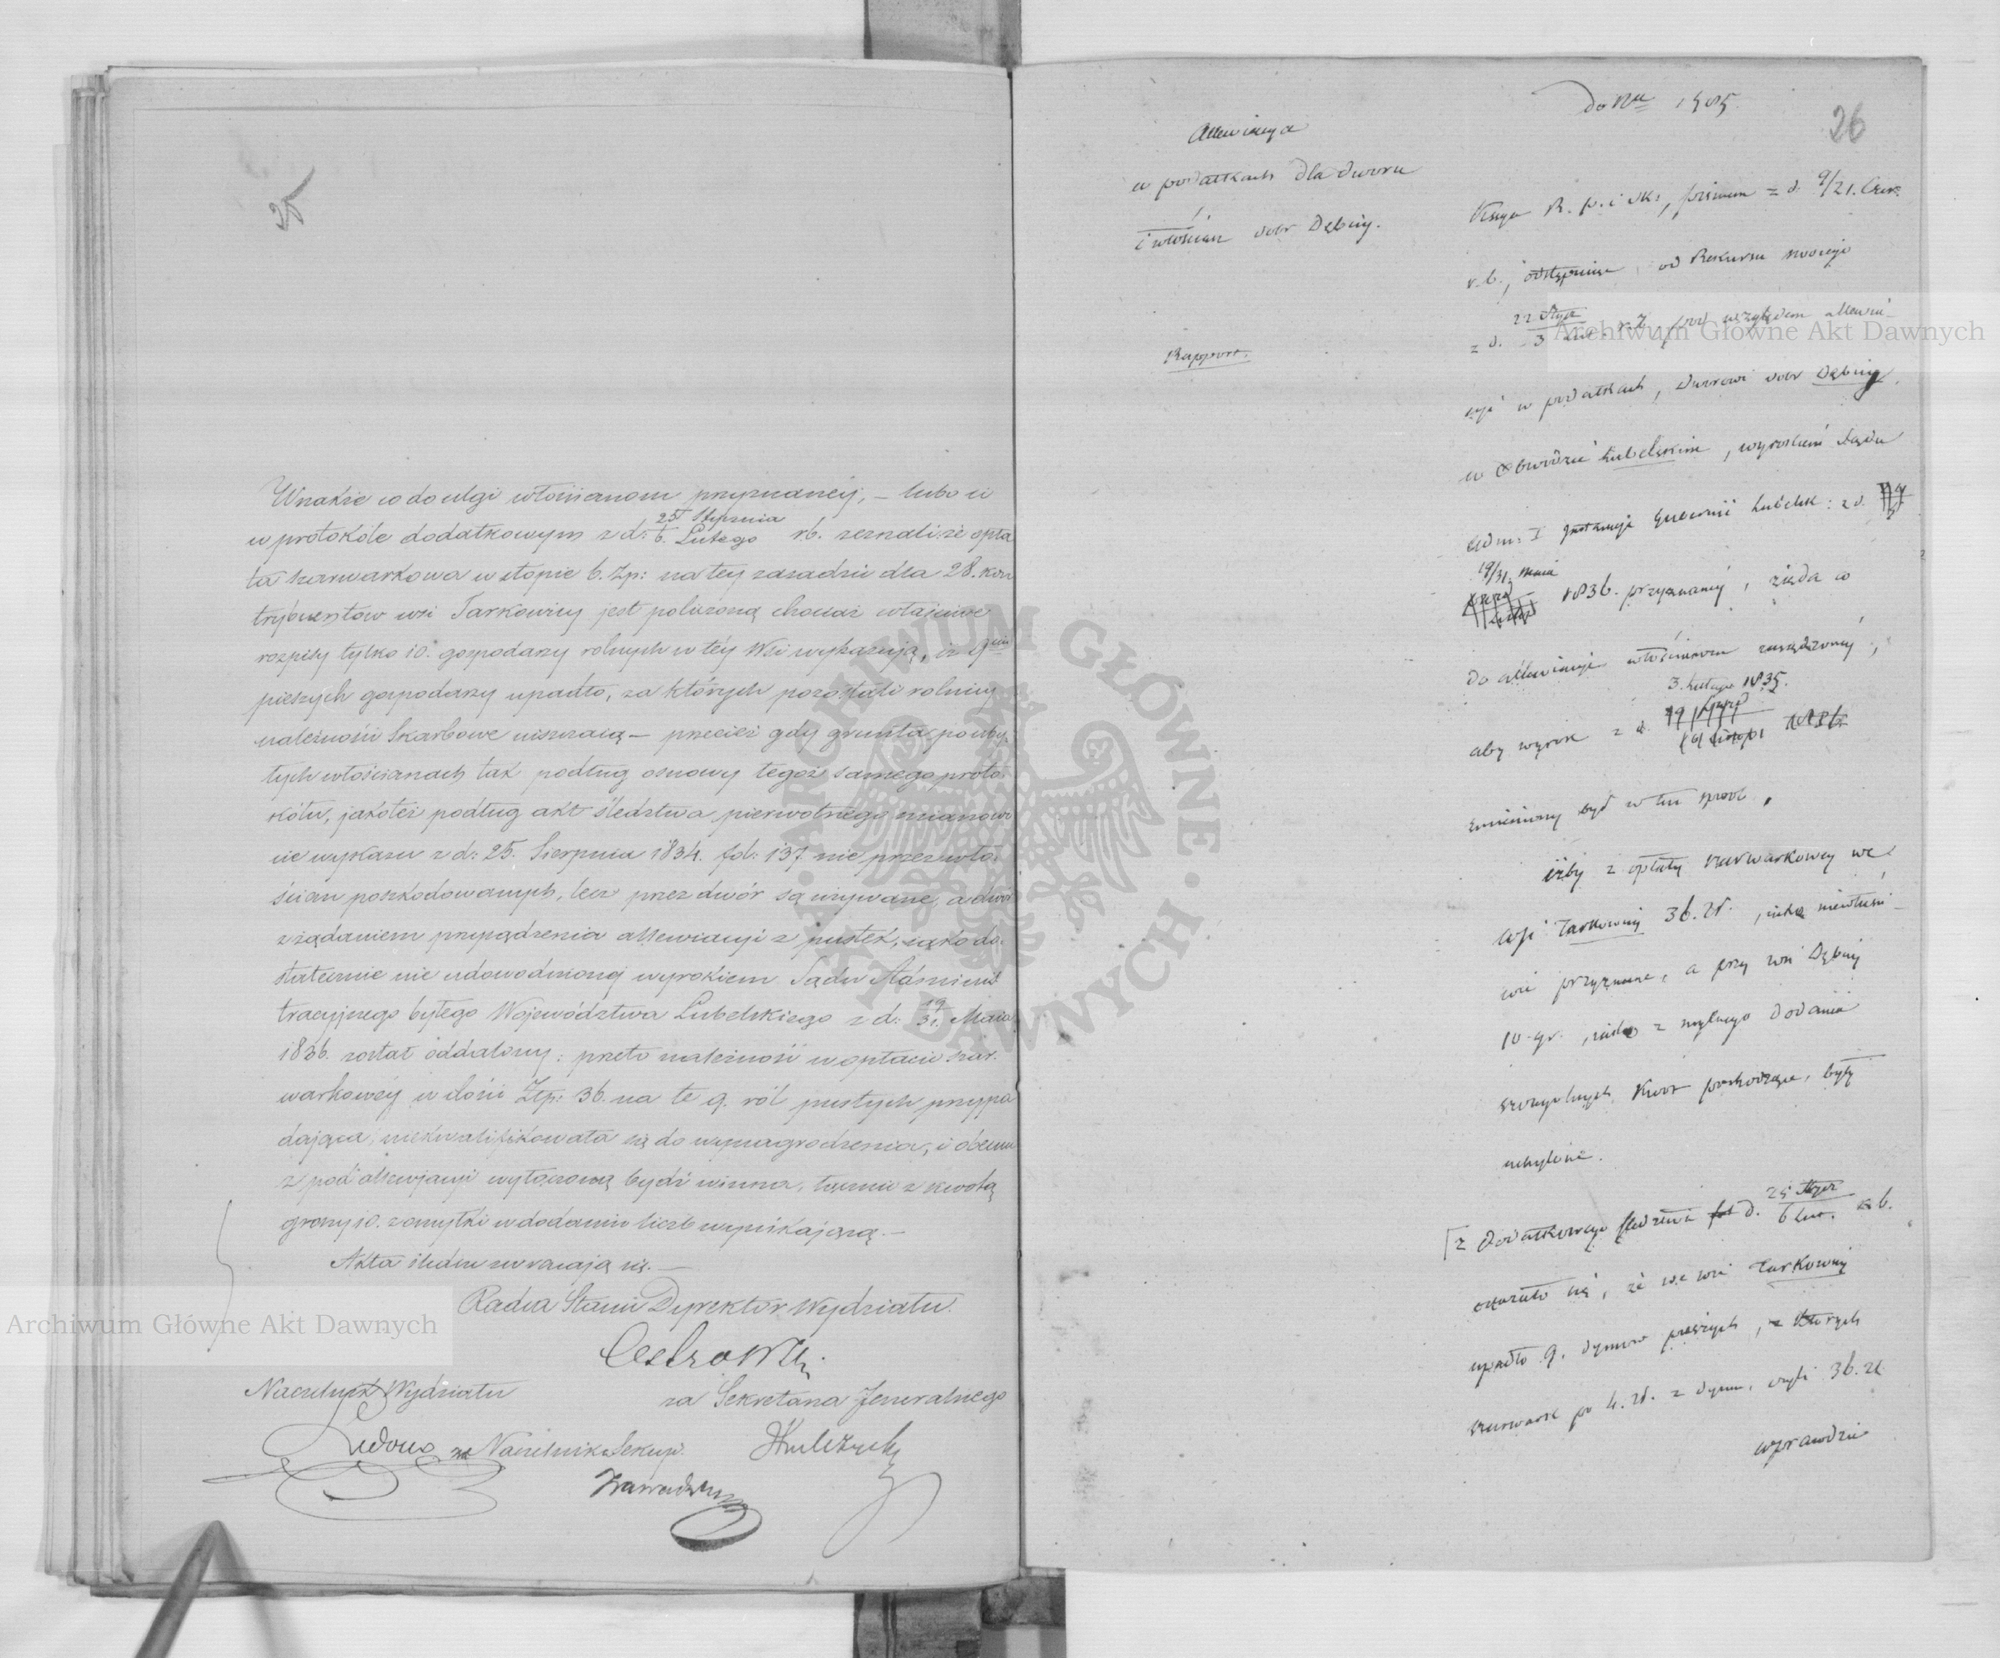 25
Wnakże co do ulgi włościanom przyznaney, – lubo ci
w protokóle dodatkowym z d: 25 Stycznia / 6. Lutego rb. zeznali: że opła
ta szarwarkowa w stopie 6. Zp: na tey zasadzie dla 28. kon
trybuentow wsi Tarkowicy jest policzoną chociaż właściwe
rozpisy tylko 10. gospodarzy rolnych w téy Wsi wykazują, iż 9ciu
pieszych gospodarzy upadło, za których pozostali rolnicy
należności Skarbowe uiszczają – przecież gdy grunta po uby,
tych włościanach tak podług osnowy tegoż samego proto,
kółu, jakoteż podług akt śledztwa pierwotnego mianowi
cie wykazu z d: 25. Sierpnia 1834. fol: 137 nie przez wło,
ścian poszkodowanych, lecz przez dwór są używane, a dwór
z żądaniem przysądzenia allewiacyi z pustek, jako do,
statecznie nie udowodnioney wyrokiem Sądu Admini
tracyjnego byłego Województwa Lubelskiego z d: 19/31. Maia
1836. został oddalony; przeto należność w opłacie szar,
warkowéy w ilości Złp: 36. na te 9. ról pustych przypa
dająca, niekwalifikowała się do wynagrodzenia, i obecnie
z pod allewjacyi wyłączoną bydź winna, łącznie z kwotą
groszy 10. z omyłki w dodaniu liczb wynikającą. –
Akta śledcze zwracają się. –
Radca Stanu Dyrektor Wydziału.
Naczelnik Wydziału
za Sekretarza Jeneralnego
za Naczelnika Sekcyi.
do Nu 1505.
26
Allewiacya
w podatkach dla Dworu
i włościan dobr Dębiny.
Rapport.
R. p. i Sk:, pismem z d. 9/21. Czerw:
r. b., odstępuiąc od Rekursu swoiego
z d. 22 Stycz / 3 Lut. r. z. pod względem allewia-
cyi w podatkach, Dworowi dobr Dębiny,
w Obwodzie Lubelskim, wyrokiem Sądu
Adm: I Instancyi Gubernii Lubelsk: z d.
19/31. Maia 1836. przyznaney, żąda co
do allewiacyi włościanom zasądzoney,
aby wyrok z d. 3. Lutego 1835.
zmieniony był w ten sposób,
iżby z opłaty szarwarkowey we
wsi Tarkowicy 36. Zł., iako niewłaści-
wie przyznane, a przy wsi Dębiny
10. gr., iako z mylnego dodania
szczegolnych kwot pochodzące, były
uchylone.
z Dodatkowego śledztwa d. 25 Stycz / 6 Lut. r. b.
okazało się, że we wsi Tarkowicy
upadło 9. dymow pieszych, z ktorych
szarwark po 4. Zł. z dymu, czyli 36. Zł
wprawdzie
Archiwum Główne Akt Dawnych
Archiwum Główne Akt Dawnych
ARCHIWUM GŁÓWNE · AKT DAWNYCH ·